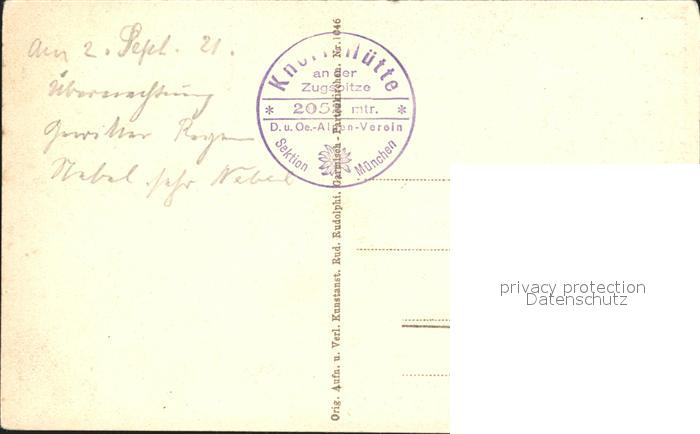 am 2. Sept. 21.
Übernachtung
Gewitter Regen
Nebel sehr Nebel
Knorrhütte
an der
Zugspitze
* 205 mtr. *
D. u. Oe.-Alpen-Verein
Sektion München
Orig. Aufn. u. Verl. Kunstanst. Rud. Rudolphi, Garmisch-Partenkirchen. Nr. 1046
privacy protection
Datenschutz